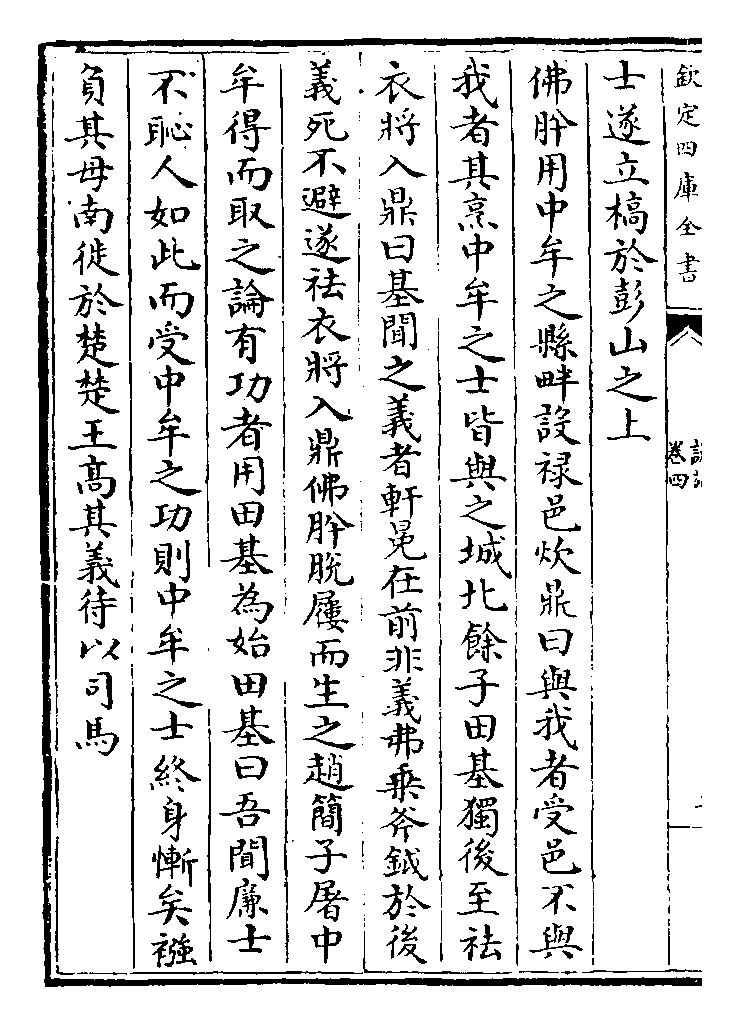 欽定四庫全書
卷四
士遂立槁於彭山之上
佛肸用中牟之縣畔設禄邑炊鼎曰與我者受邑不與
我者其烹中牟之士皆與之城北餘子田基獨後至袪
衣將入鼎曰基聞之義者軒冕在前非義弗乗斧鉞於後
義死不避遂袪衣將入鼎佛肸脱屨而生之趙簡子屠中
牟得而取之論有功者用田基為始田基曰吾聞廉士
不恥人如此而受中牟之功則中牟之士終身慚矣襁
負其母南徙於楚楚王髙其義待以司馬